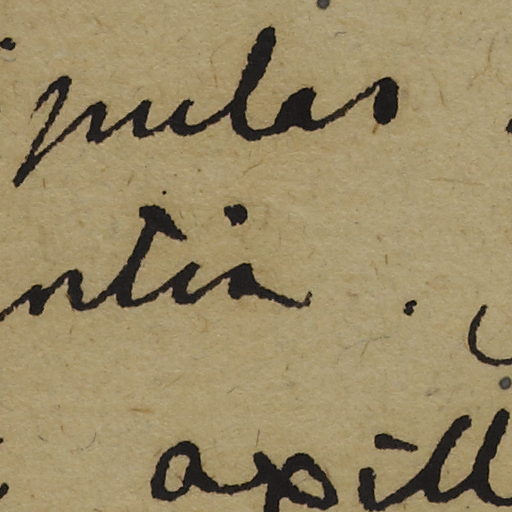 ipulas
ntia .
apill